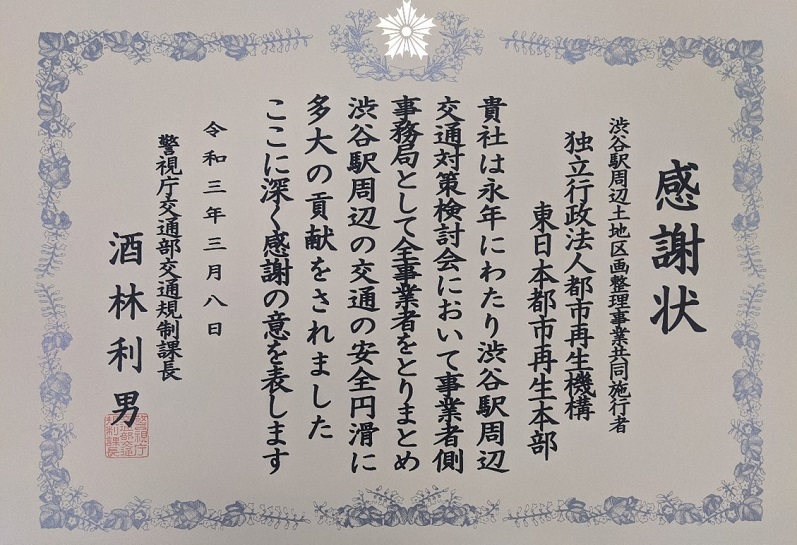 感謝状
渋谷駅周辺土地区画整理事業共同施行者
独立行政法人都市再生機構
東日本都市再生本部
貴社は永年にわたり渋谷駅周辺
交通対策検討会において事業者側
事務局として全事業者をとりまとめ
渋谷駅周辺の交通の安全円滑に
多大の貢献をされました
ここに深く感謝の意を表します
令和三年三月八日
警視庁交通部交通規制課長
酒林利男